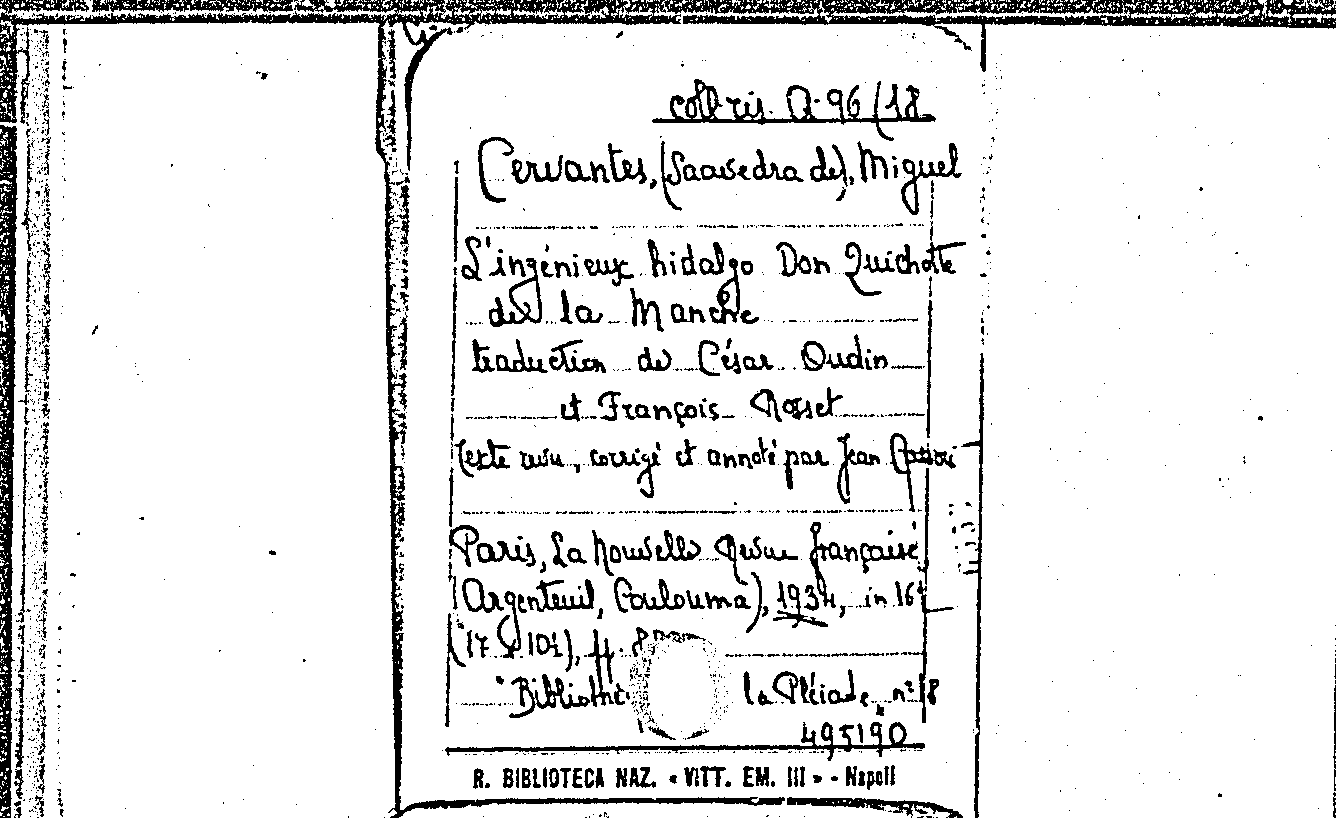 coll. ris. Q. 96/18
Cervantes, (Saavedra de), Miguel
L'ingénieux hidalgo Don Quichotte
de la Manche
traduction de César Oudin
et François Rosset
texte revu, corrigé et annoté par Jean Cassou
Paris, La Nouvelle Revue française
(Argenteuil, Coulouma), 1934, in 16°
(17 x 101), pp.
"Biblioth la Pléiade, n° 18
495190
R. BIBLIOTECA NAZ. « VITT. EM. III » - Napoli